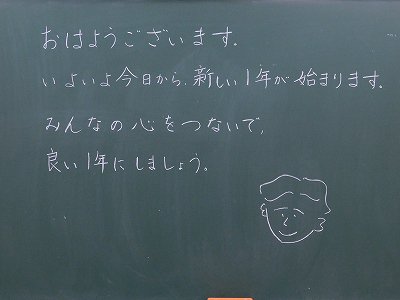 おはようございます。
いよいよ今日から、新しい1年が始まります。
みんなの心をつないで、
良い1年にしましょう。